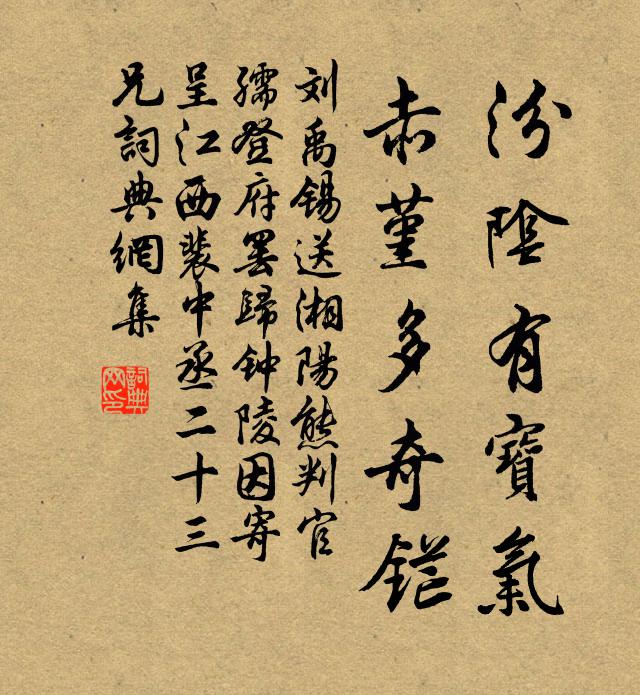 汾陰有寶氣
赤堇多奇鋩
刘禹锡送湘陽熊判官
孺登府罢歸钟陵因寄
呈江西裴中丞二十三
兄詞典網集
詞典网印